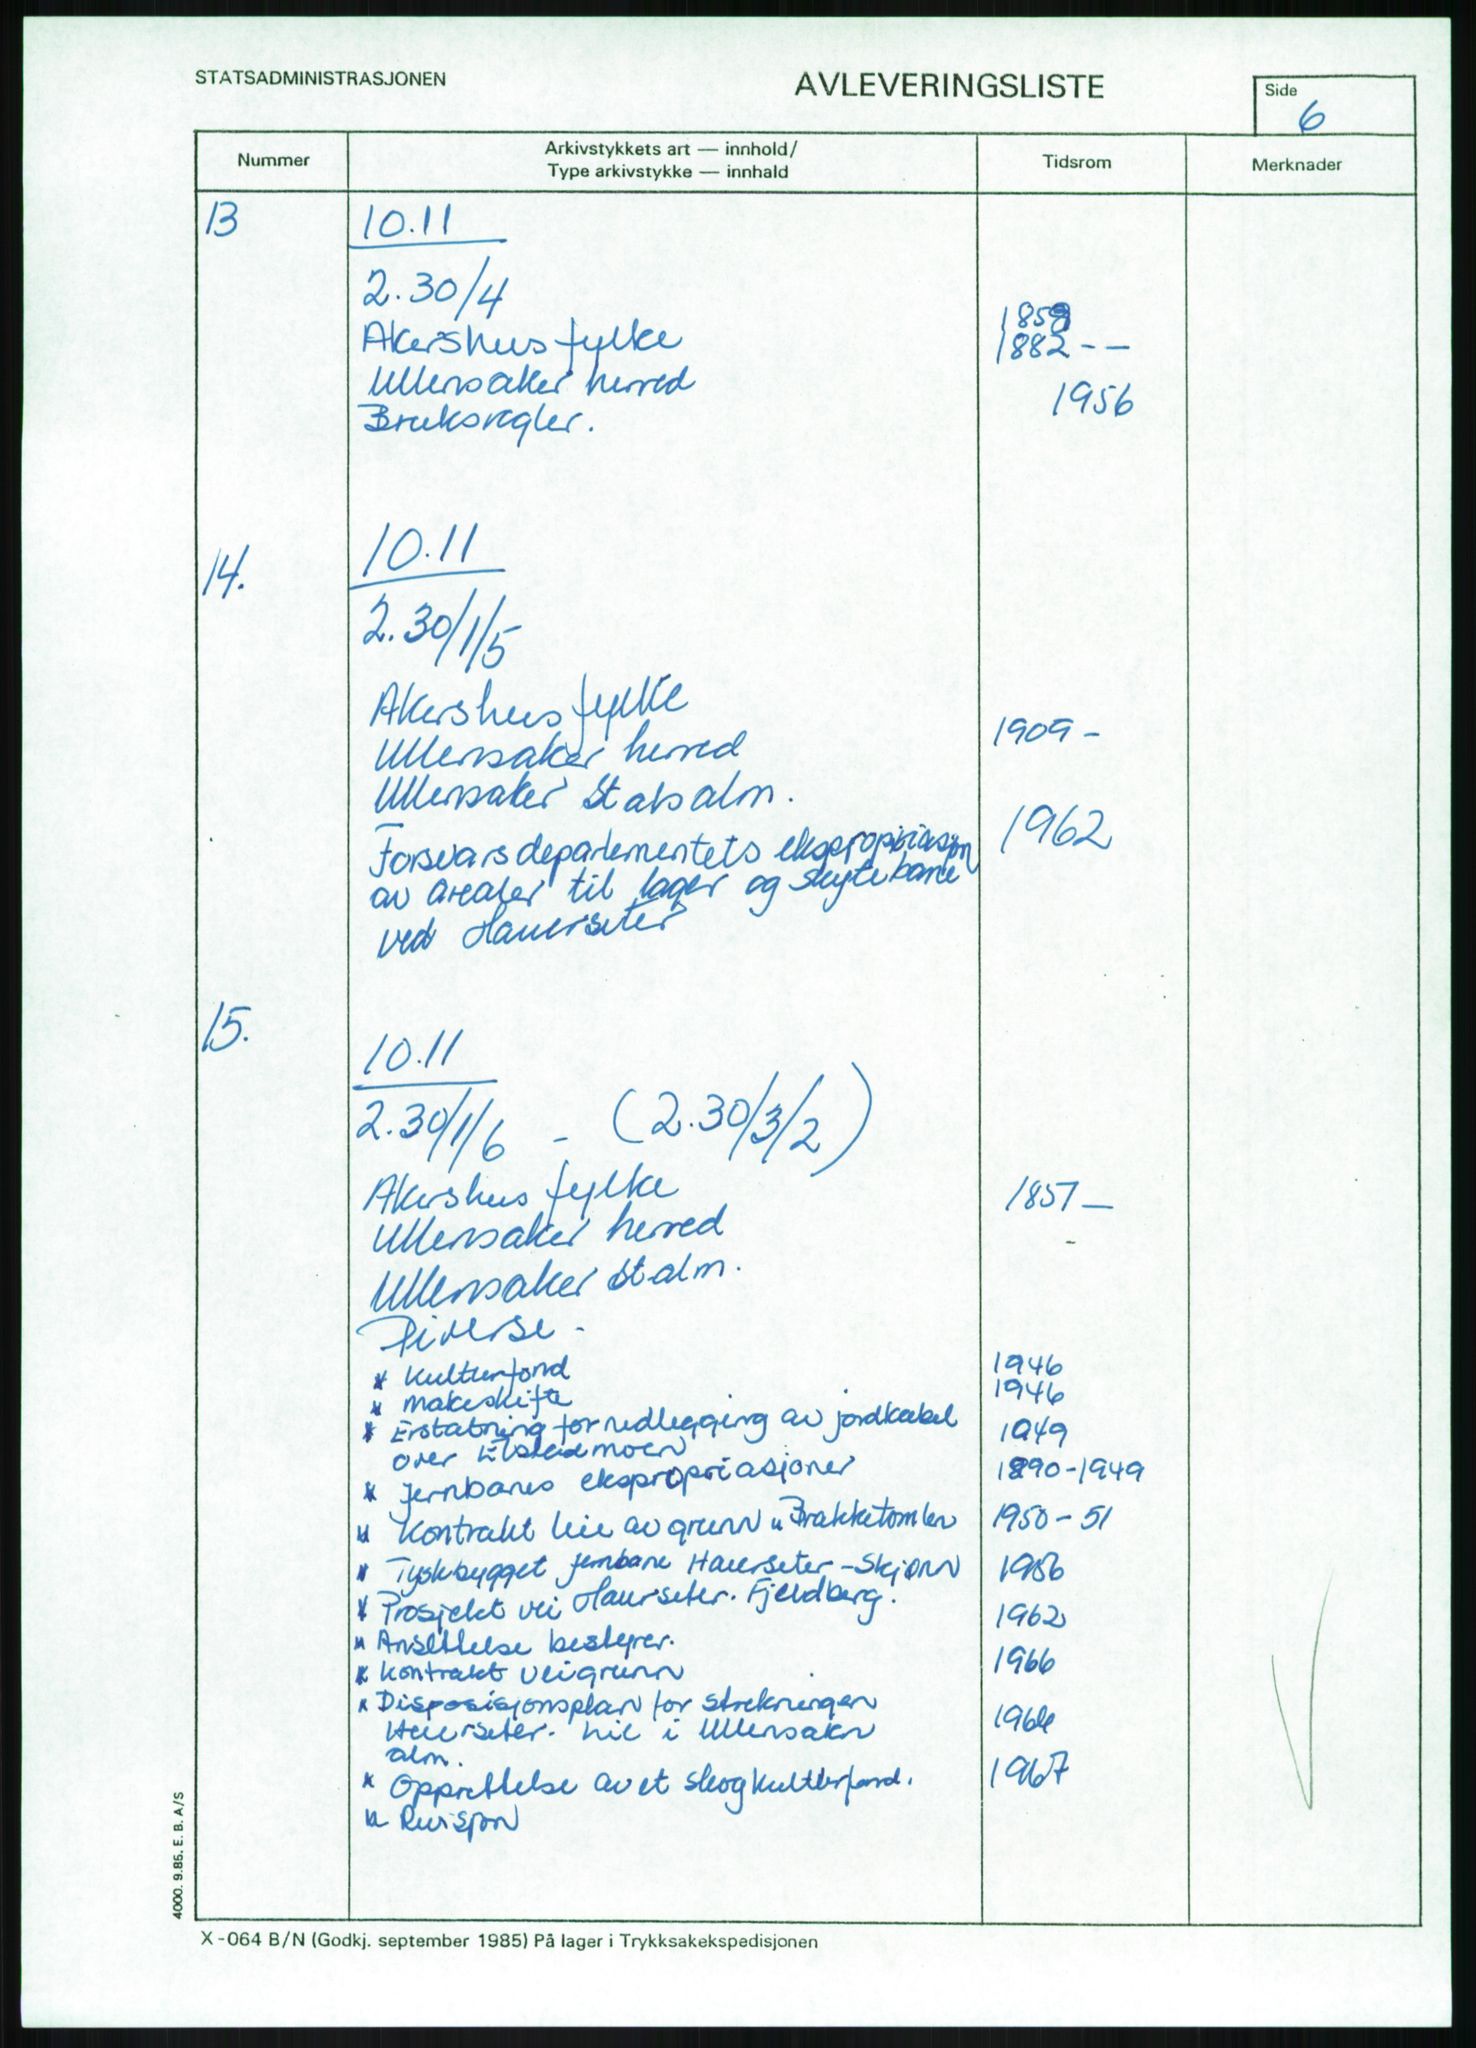 STATSADMINISTRASJONEN
AVLEVERINGSLISTE
Side
6
Nummer
Arkivstykkets art — innhold/
Type arkivstykke — innhald
Tidsrom
Merknader
13
10.11
2.30/4
1859
Akershus fylke
1882 - -
Ullensaker herred
1956
Bruksregler.
14.
10.11
2.30/1/5
Akershus fylke
Ullensaker herred
1909 -
Ullensaker Statsalm.
Forsvarsdepartementets ekspropriasjon
1962
av arealer til lager og skytebane
ved Hauerseter
15.
10.11
2.30/1/6 - (2.30/3/2)
Akershus fylke
1857 -
Ullensaker herred
-
Ullensaker st alm.
Diverse -
* Kulturfond
1946
* makeskifte
1946
* Erstatning for nedlegging av jordkabel
1949
over moen
* Jernbanes ekspropriasjoner
1890-1949
* Kontrakt leie av grunn "Brakketomten
1950 - 51
* Tyskbygget jernbane Hauerseter - Skjønn
1956
* Prosjekt vei Haurseter. Fjeldberg.
1962
* Ansettelse bestyrer.
* Kontrakt veigrunn
1966
* Disposisjonsplan for strekningen
Hauerseter. i Ullensaker
1964
alm.
* Opprettelse av et skogkulturfond.
1967
* Revisjon
4000. 9.85. E. B. A/S
X-064 B/N (Godkj. september 1985) På lager i Trykksakekspedisjonen